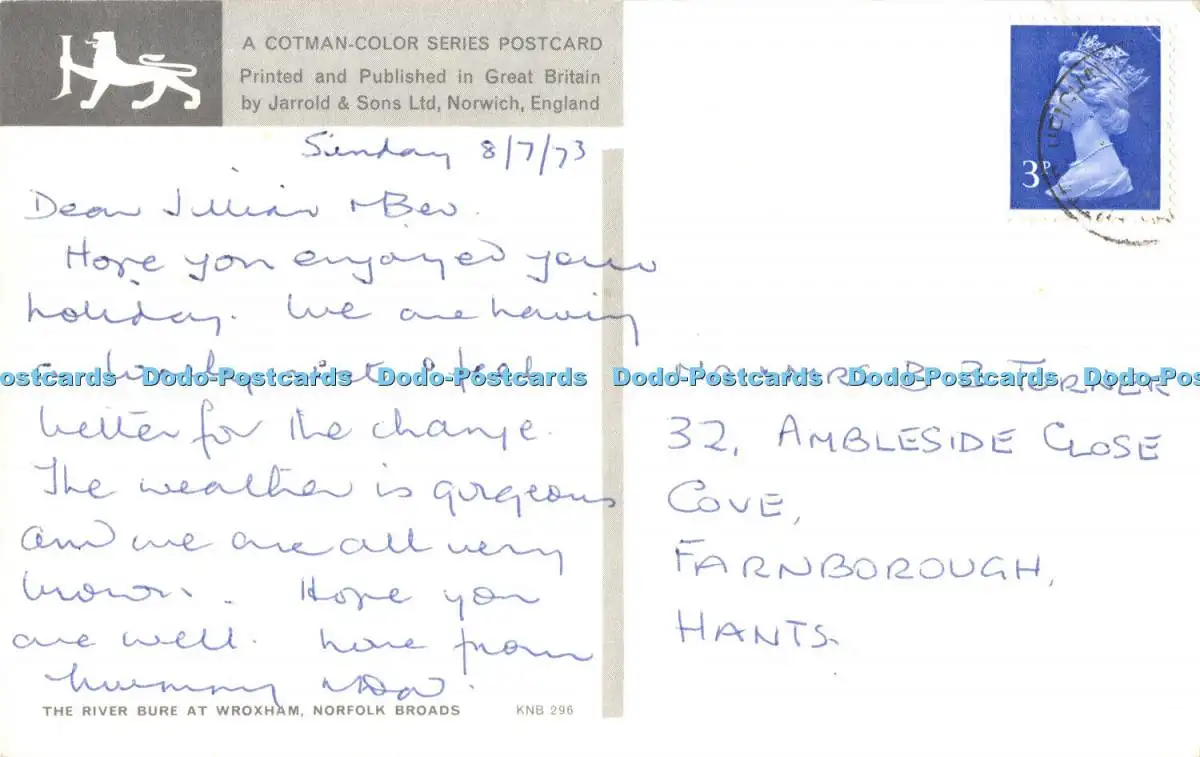 A COTMAN-COLOR SERIES POSTCARD
Printed and Published in Great Britain
by Jarrold & Sons Ltd, Norwich, England
Sunday 8/7/73
Dear Jillian & Bev.
Hope you enjoyed your
holiday. We are having
a lovely & feel
better for the change.
The weather is gorgeous
and we are all very
brown. Hope you
are well. Love from
Mummy & Dad.
THE RIVER BURE AT WROXHAM, NORFOLK BROADS KNB 296
3P
B B TURNER
32, AMBLESIDE CLOSE
COVE,
FARNBOROUGH,
HANTS.
Dodo-Postcards Dodo-Postcards Dodo-Postcards Dodo-Postcards